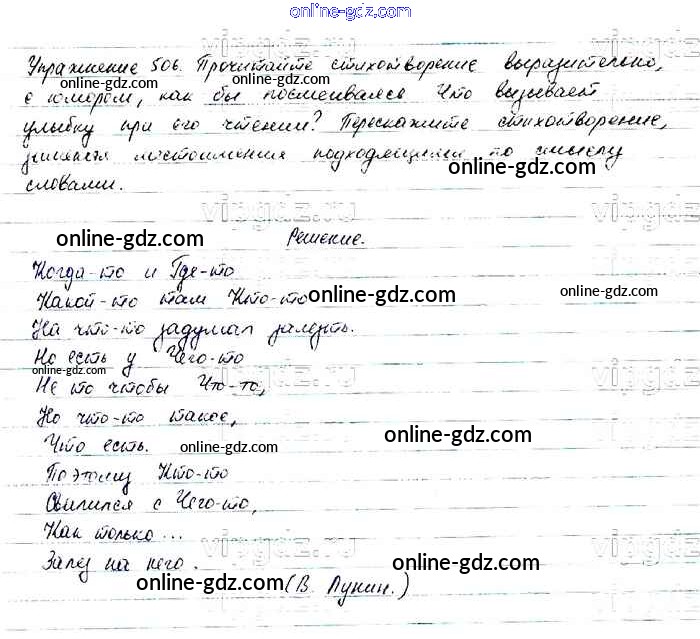 online-gdz.com
Упражнение 506. Прочитайте стихотворение выразительно,
online-gdz.com
с юмором, как бы посмеиваясь Что вызывает
улыбку при его чтении? Перескажите стихотворение,
местоимения подходящими по смыслу
online-gdz.com
словами.
vipgdz.ru
online-gdz.com
Решение.
Когда-то и Где-то
Какой-то там Кто-то
online-gdz.com
online-gdz.com
На что-то задумал залезть.
Но есть у Чего-то
online-gdz.com
Не то чтобы Что-то,
Но что-то такое,
online-gdz.com
Что есть.
online-gdz.com
Поэтому Кто-то
Свалился с Чего-то,
Как только...
vipgdz.ru
Залез на него.
online-gdz.com
online-gdz.com
(В. Лунин.)